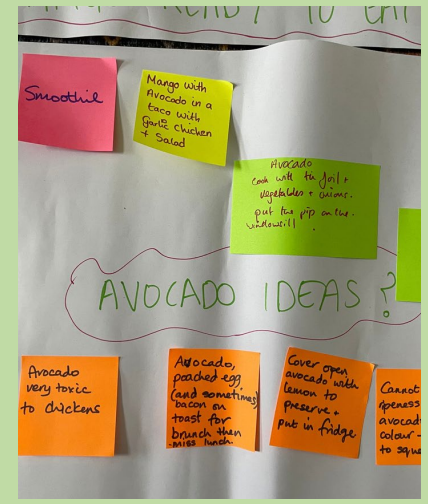 READY TO EAT
Smoothie
Mango with
Avocado in a
taco with
garlic chicken
+ Salad
Avocado
cook with tin foil +
vegetables + onions.
put the pip on the
windowsill.
AVOCADO IDEAS?
Avocado
very toxic
to chickens
Avocado,
poached egg,
(and sometimes)
bacon on
toast for
brunch then
miss lunch.
Cover open
avocado with
lemon to
preserve +
put in fridge
Cannot
ripeness
avocad
colour -
to sque